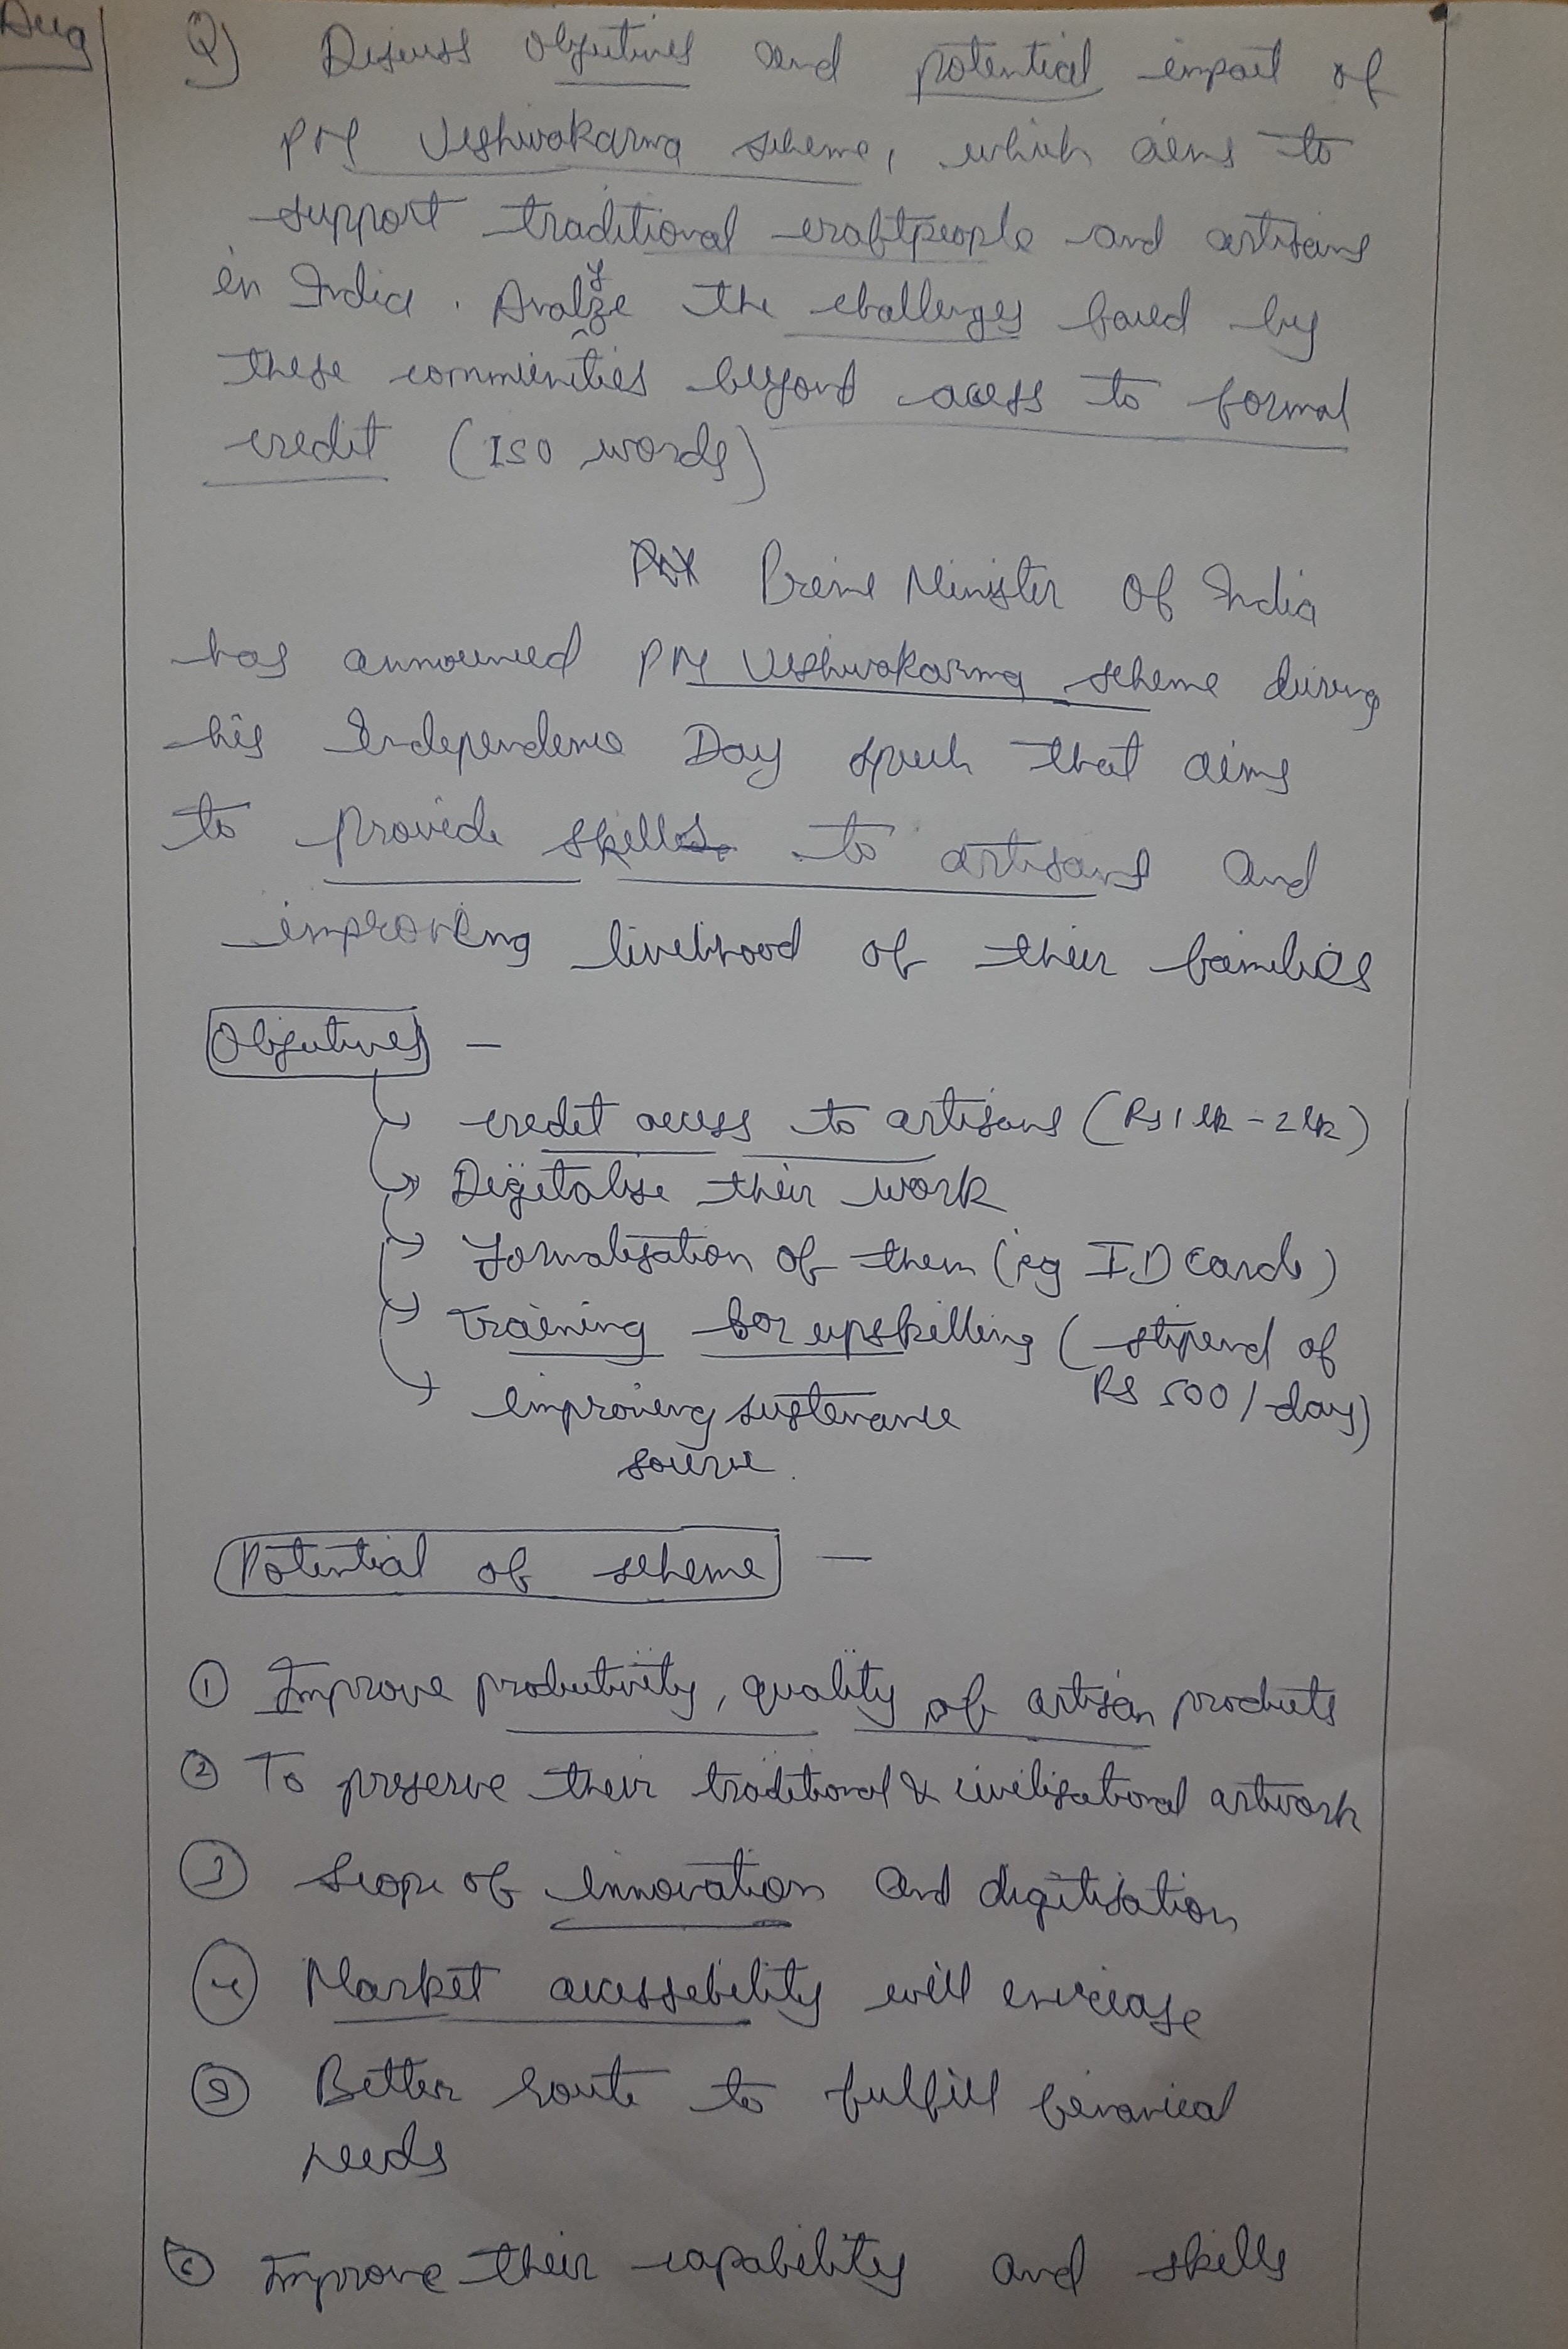 Aug
Q) Discuss objectives and potential impact of
PM Vishwakarma scheme, which aims to
support traditional craftpeople and artisans
in India. Analyze the challenges faced by
these communities beyond access to formal
credit (150 words)
Prime Minister of India
has announced PM Vishwakarma scheme during
his Independence Day speech that aims
to provide skills to artisans and
improving livelihood of their families
Objectives -
credit access to artisans (Rs 1 lk - 2 lk)
Digitalise their work
Formalisation of them (eg ID cards)
Training for upskilling (stipend of
Rs 500/day)
improving sustenance
source.
Potential of scheme -
① Improve productivity, quality of artisan products
② To preserve their traditional & civilisational artwork
③ Scope of innovation and digitisation
④ Market accessibility will increase
⑤ Better route to fulfill financial
needs
⑥ Improve their capability and skills